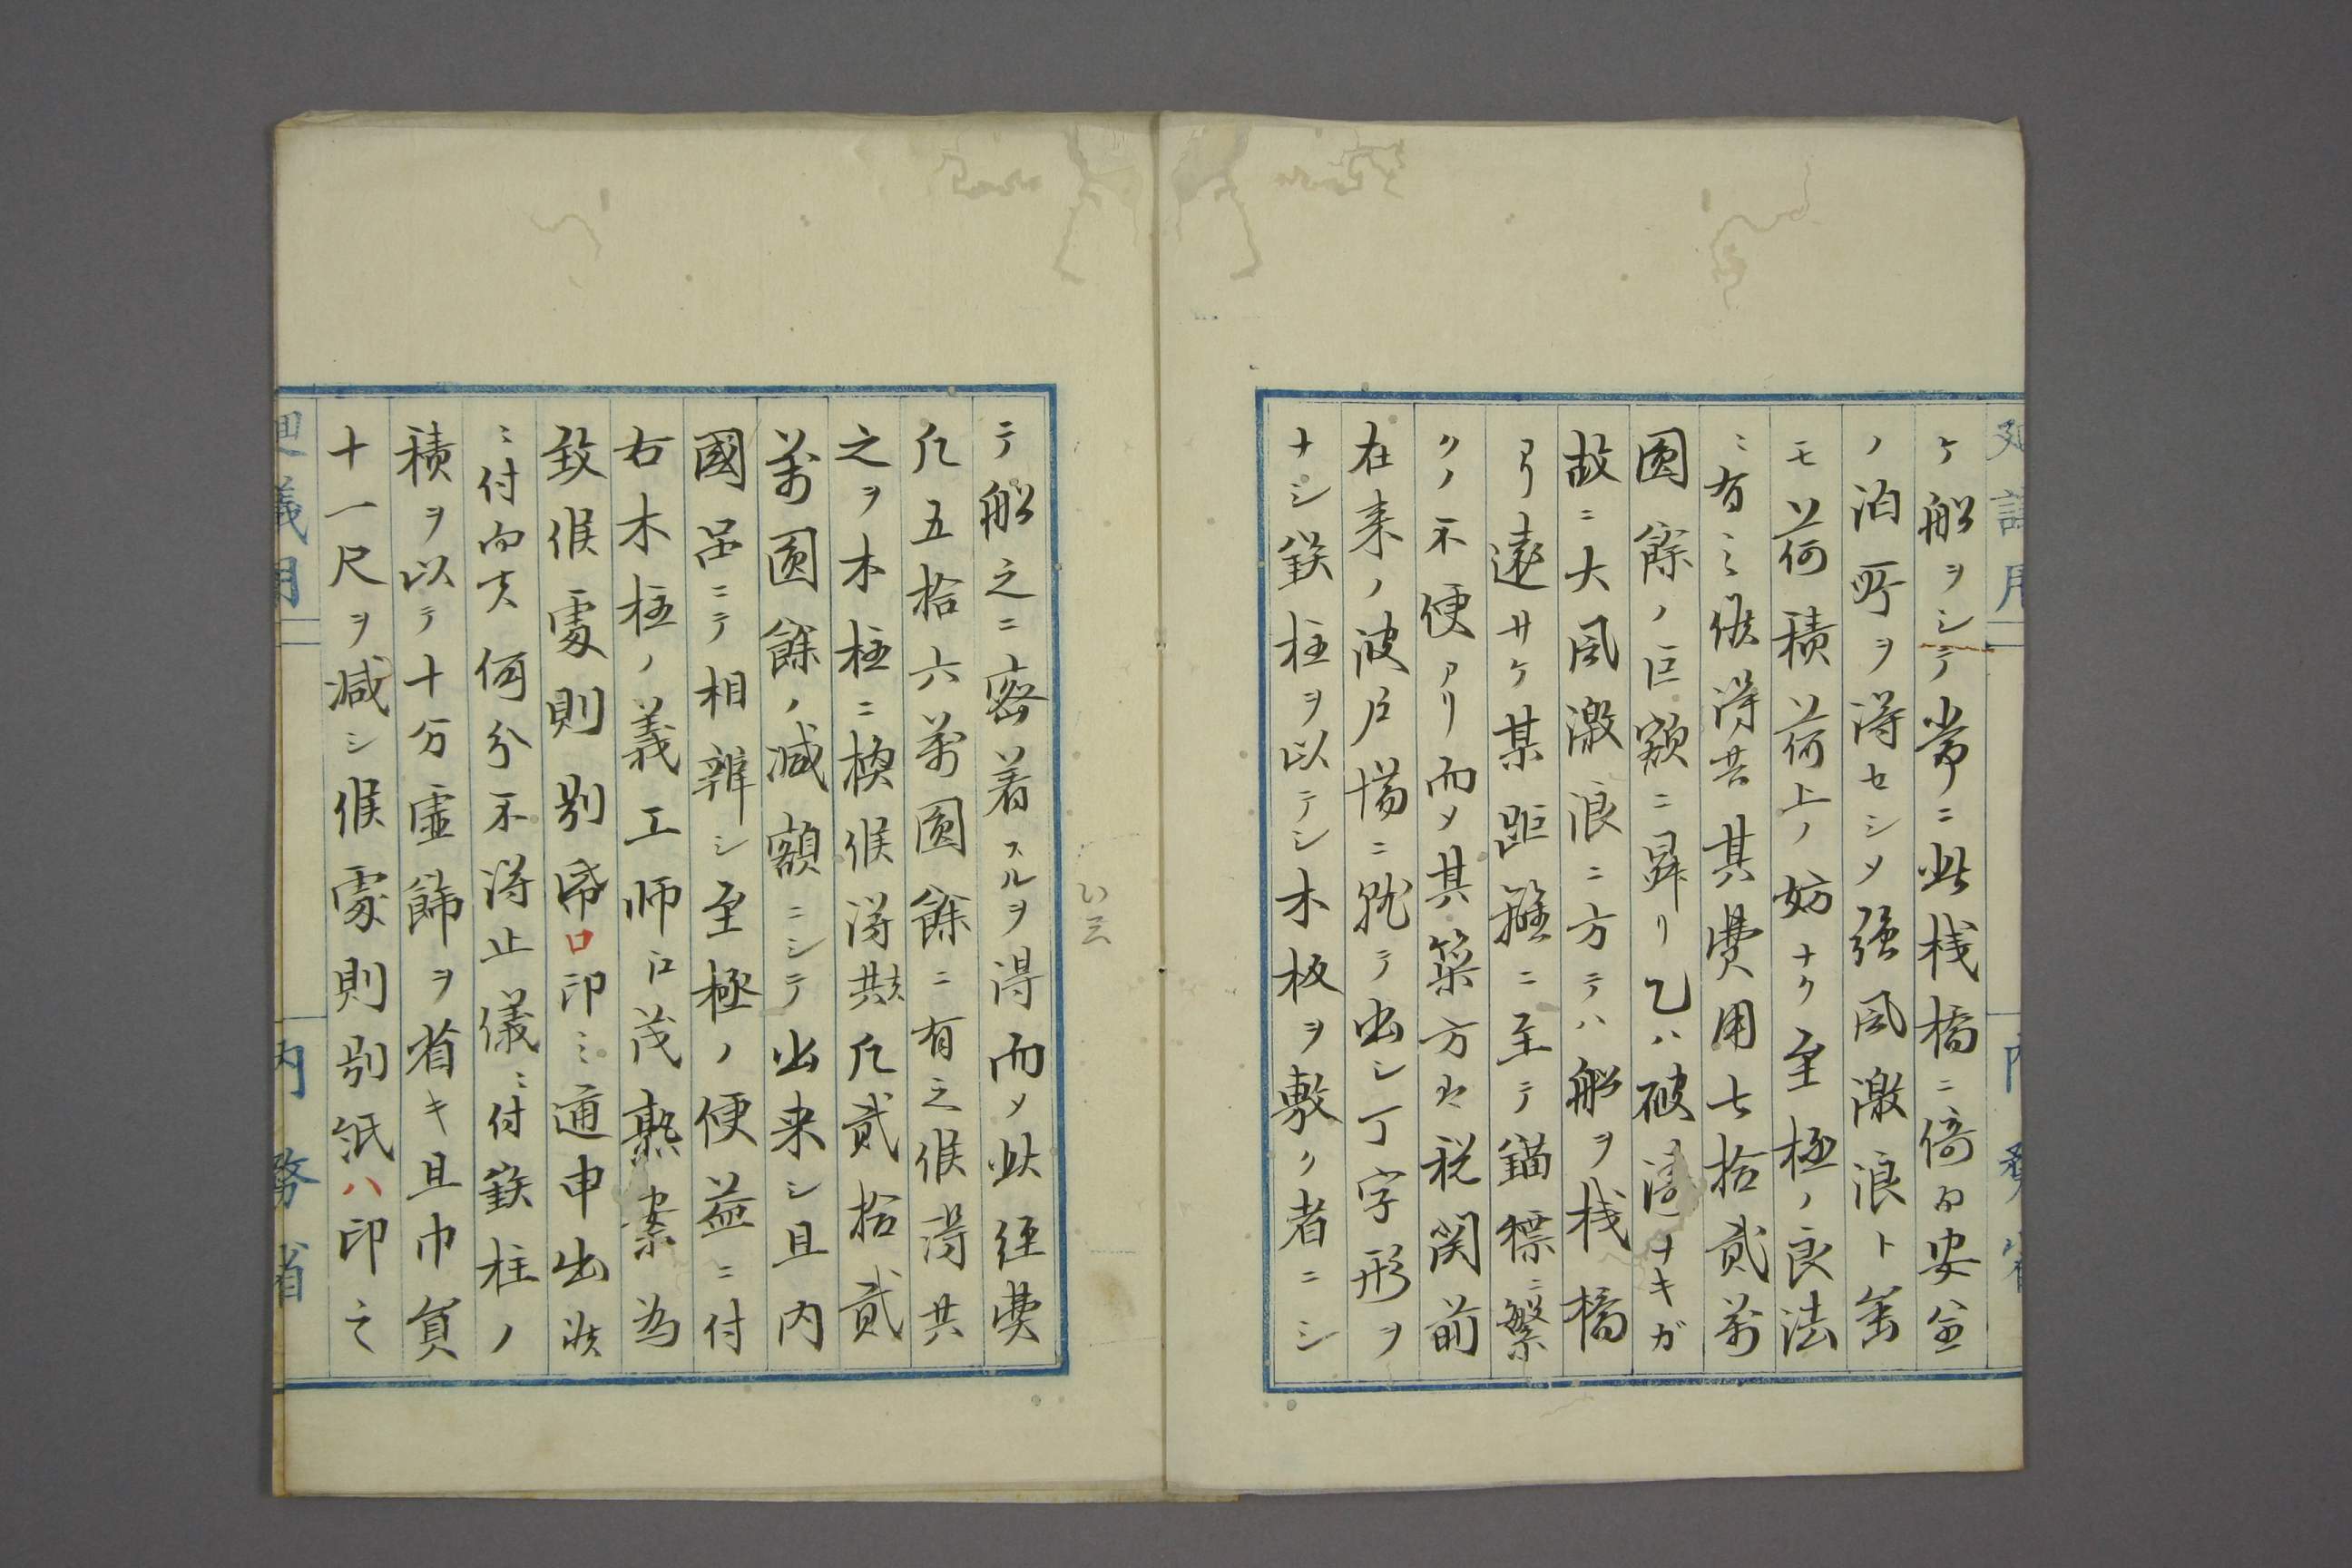 ケ船ヲシテ常ニ此棧橋ニ倚シ安全
ノ泊所ヲ得セシメ強風激浪ト雖
モ荷積荷上ノ妨ナク至極ノ良法
ニ有之候得共其費用七拾貳萬
圓餘ノ巨額ニ昇リ乙ハ破濤ナキガ
故ニ大風激浪ニ方テハ船ヲ棧橋
ヨリ遠サケ某距離ニ至テ錨標ニ繋
クノ不便アリ而メ其築方ハ税関前
在来ノ波戸場ニ就テ出シ丁字形ヲ
ナシ鉄柱ヲ以テシ木板ヲ敷ク者ニシ
テ船之ニ密着スルヲ得而メ此経費
凡五拾六萬圓餘ニ有之候得共
之ヲ木柱ニ換候得共凡貳拾貳
萬圓餘ノ減額ニシテ出来シ且内
國品ニテ相辨シ至極ノ便益ニ付
右木柱ノ義工師江茂熟案為
致候處則別帋ロ印之通申出候
ニ付向夫何分不得止儀ニ付鉄柱ノ
積ヲ以テ十分虚飾ヲ省キ且巾員
十一尺ヲ減シ候處則別紙ハ印之
廻議用
内務省